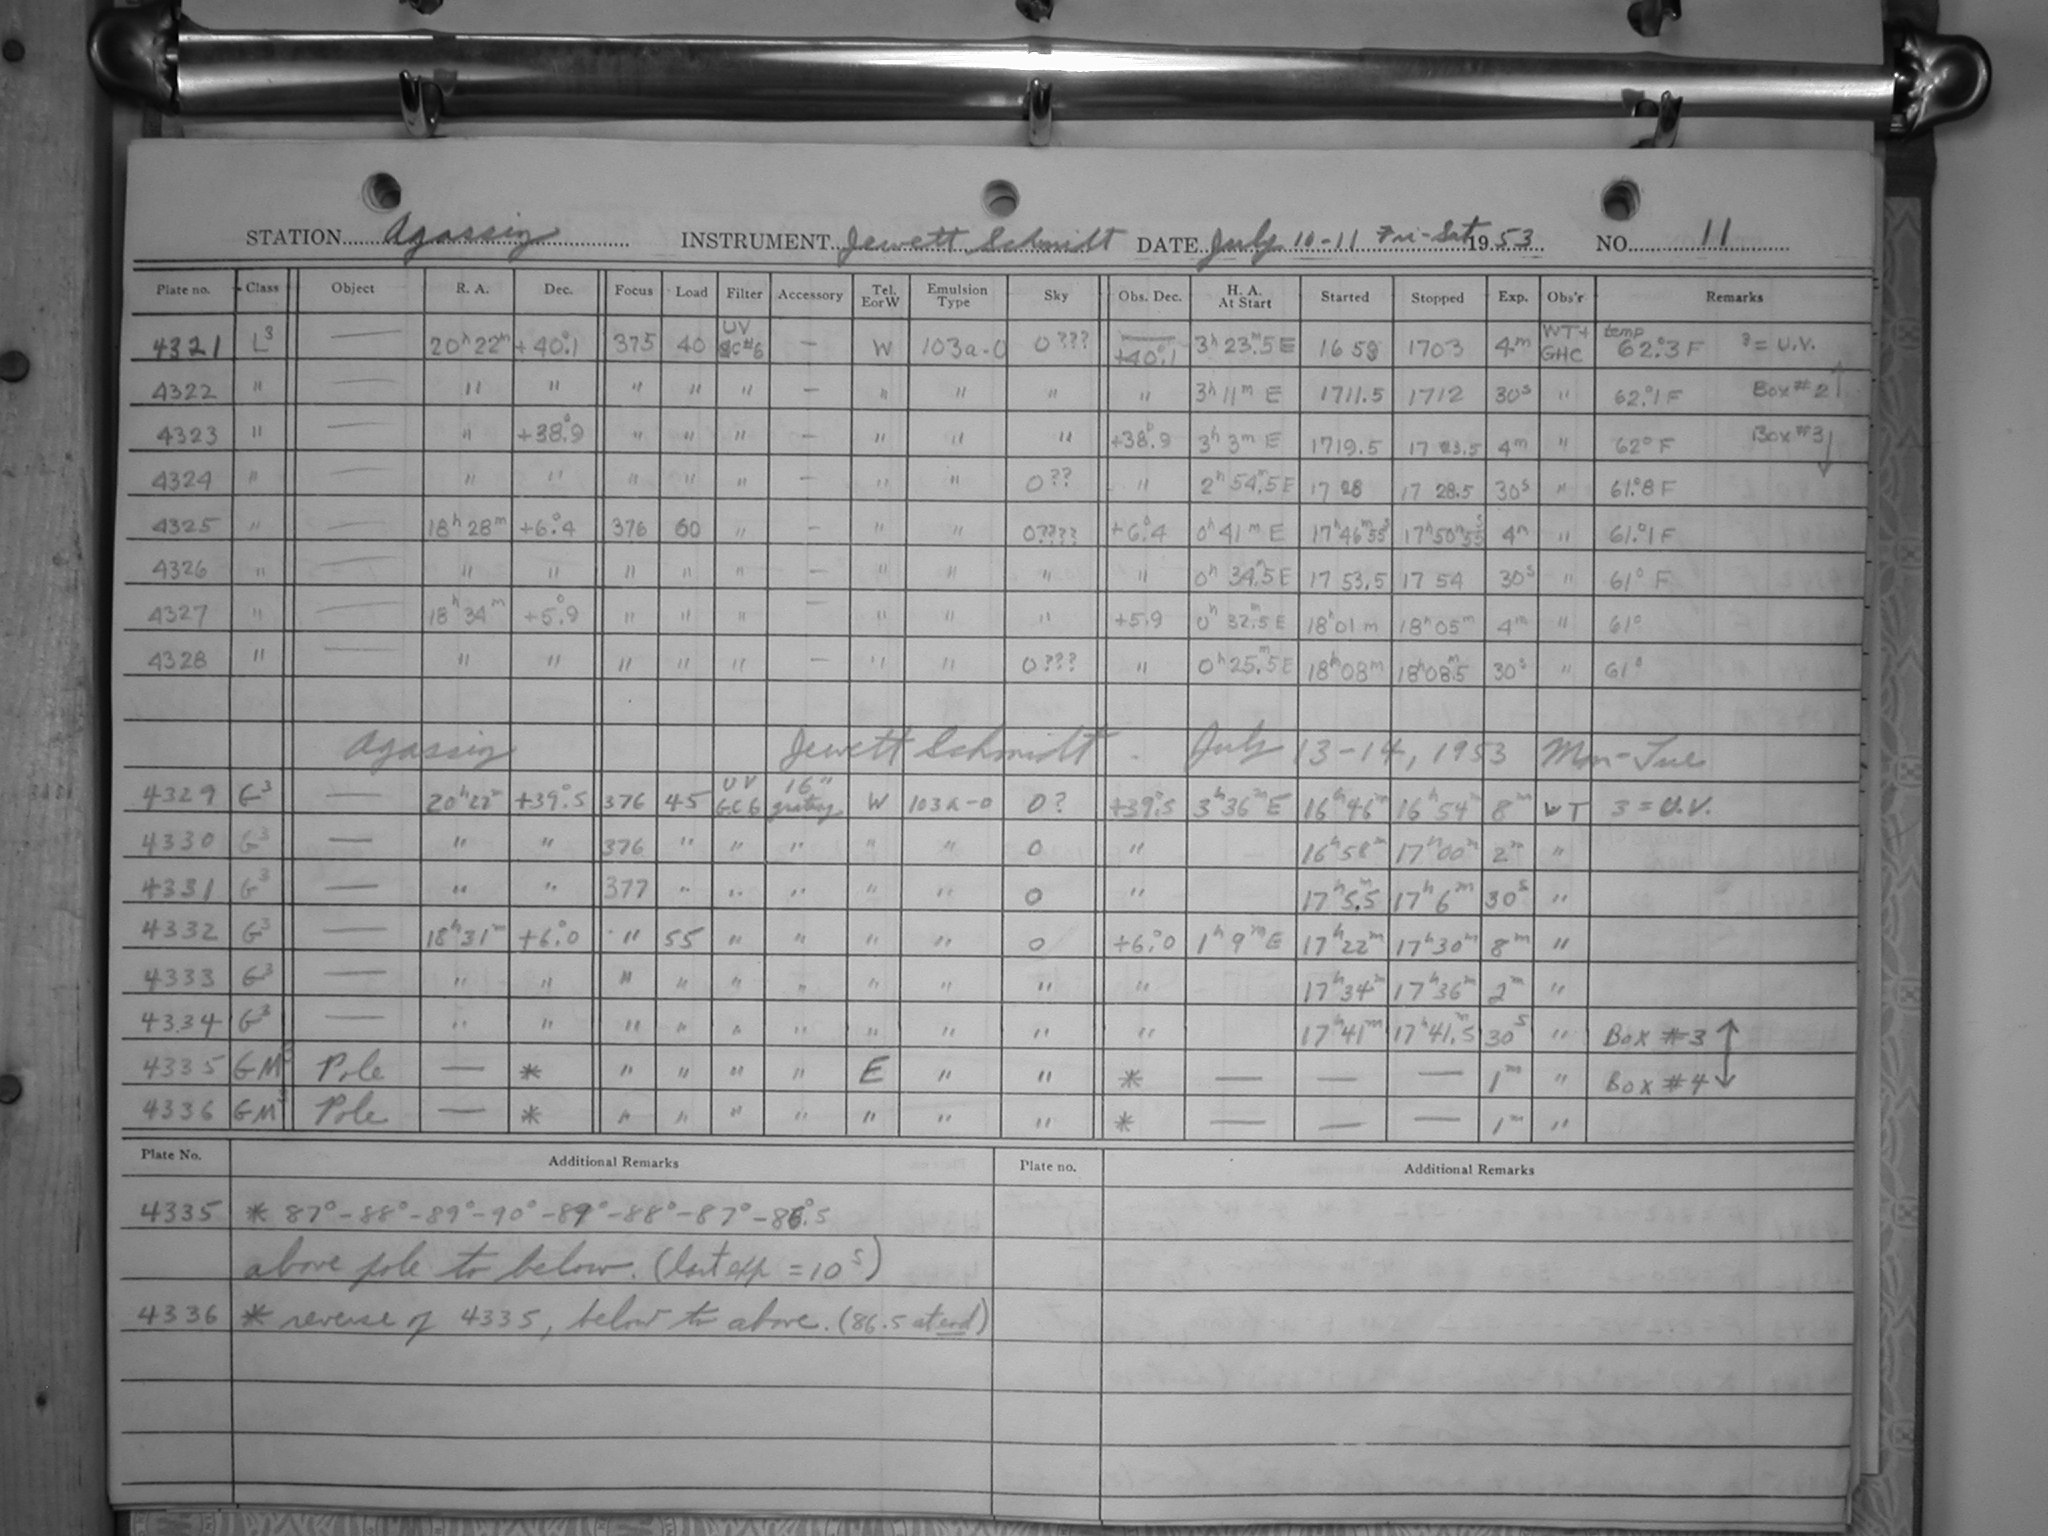 STATION Agassiz INSTRUMENT Jewett Schmidt DATE July 10-11 Fri-Sat 1953 NO. 11
Plate no. Class Object R. A. Dec. Focus Load Filter Accessory Tel. E or W Emulsion Type Sky Obs. Dec. H. A. At Start Started Stopped Exp. Obs'r Remarks
4321 L³ — 20ʰ22ᵐ +40°.1 375 40 UV GC#6 — W 103a-O 0??? +40°.1 3ʰ23ᵐ.5E 1659 1703 4ᵐ WT+ GHC temp 62°.3F ³=U.V.
4322 " — " " " " " — " " " " 3ʰ11ᵐE 1711.5 1712 30ˢ " 62°.1F Box #2↑
4323 " — " +38°.9 " " " — " " " +38°.9 3ʰ3ᵐE 1719.5 1723.5 4ᵐ " 62°F Box #3↓
4324 " — " " " " " — " " 0?? " 2ʰ54ᵐ.5E 1728 1728.5 30ˢ " 61°.8F
4325 " — 18ʰ28ᵐ +6°.4 376 60 " — " " 0???? +6°.4 0ʰ41ᵐE 17ʰ46ᵐ55ˢ 17ʰ50ᵐ55ˢ 4ᵐ " 61°.1F
4326 " — " " " " " — " " " " 0ʰ34ᵐ.5E 1753.5 1754 30ˢ " 61°F
4327 " — 18ʰ34ᵐ +5°.9 " " " — " " " +5.9 0ʰ32ᵐ.5E 18ʰ01ᵐ 18ʰ05ᵐ 4ᵐ " 61°
4328 " — " " " " " — " " 0??? " 0ʰ25ᵐ.5E 18ʰ08ᵐ 18ʰ08ᵐ.5 30ˢ " 61°
Agassiz Jewett Schmidt. July 13-14, 1953 Mon-Tue
4329 G³ — 20ʰ22ᵐ +39°.5 376 45 UV GC6 16" grating W 103a-O 0? +39°.5 3ʰ36ᵐE 16ʰ46ᵐ 16ʰ54ᵐ 8ᵐ WT 3=U.V.
4330 G³ — " " 376 " " " " " 0 " 16ʰ58ᵐ 17ʰ00ᵐ 2ᵐ "
4331 G³ — " " 377 " " " " " 0 " 17ʰ5ᵐ.5 17ʰ6ᵐ 30ˢ "
4332 G³ — 18ʰ31ᵐ +6°.0 " 55 " " " " 0 +6°.0 1ʰ9ᵐE 17ʰ22ᵐ 17ʰ30ᵐ 8ᵐ "
4333 G³ — " " " " " " " " " " 17ʰ34ᵐ 17ʰ36ᵐ 2ᵐ "
4334 G³ — " " " " " " " " " " 17ʰ41ᵐ 17ʰ41ᵐ.5 30ˢ " Box #3↑
4335 GM³ Pole — * " " " " E " " * — — — 1ᵐ " Box #4↓
4336 GM³ Pole — * " " " " " " " * — — — 1ᵐ "
Plate No. Additional Remarks Plate no. Additional Remarks
4335 * 87°-88°-89°-90°-89°-88°-87°-86°.5
above pole to below. (last exp = 10ˢ)
4336 * reverse of 4335, below to above. (86.5 at end)